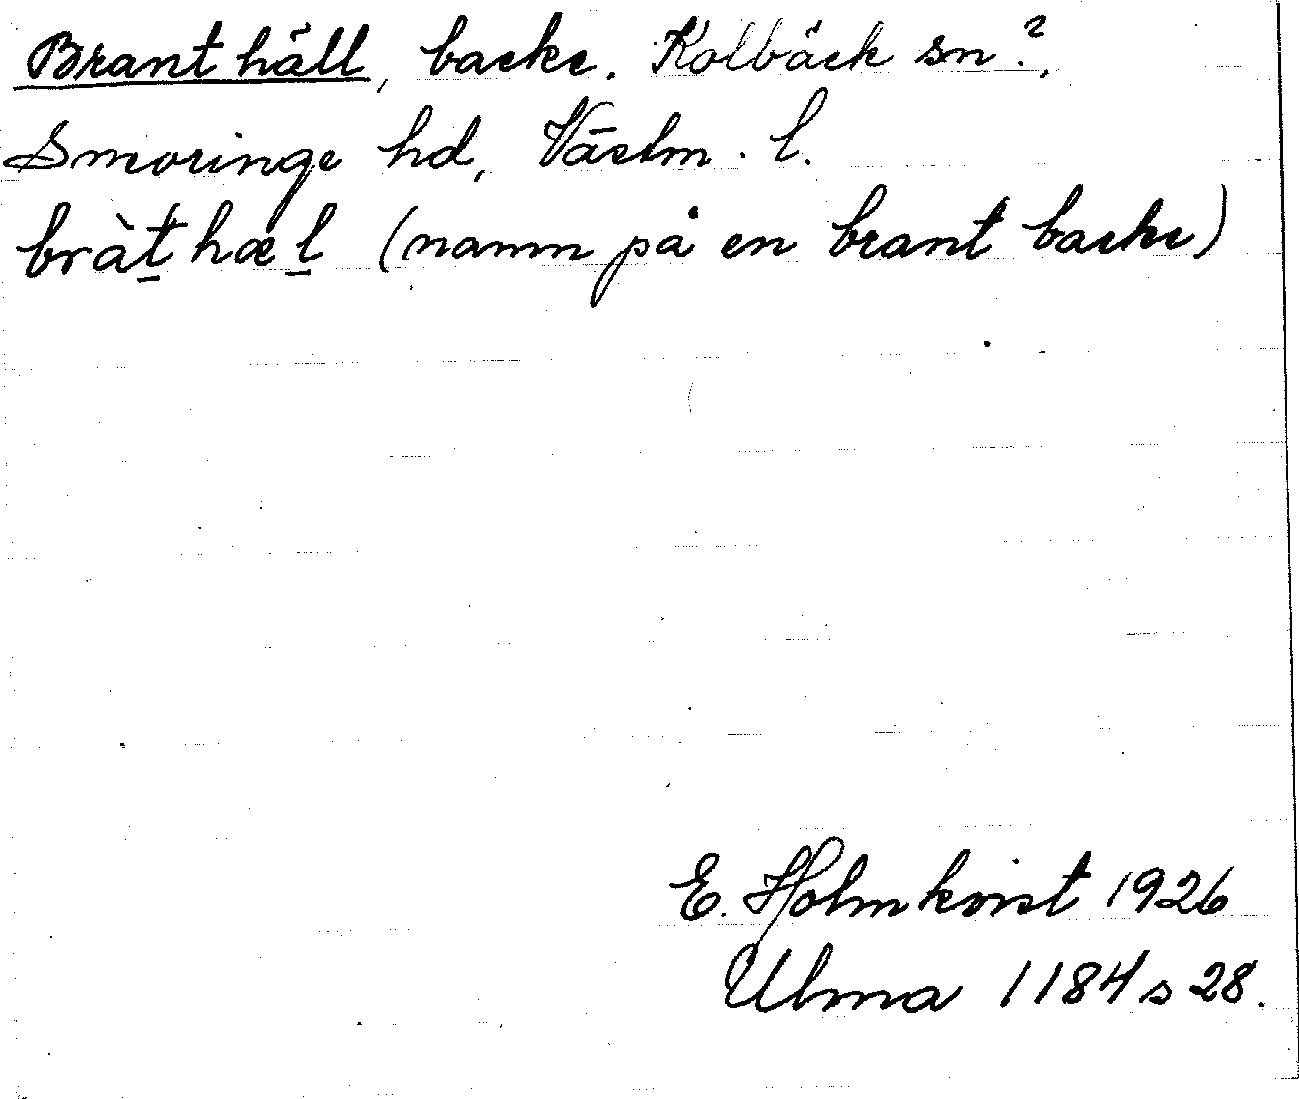 Brant häll, backe. Kolbäck sn?.
Smoringe hd, Västm. l.
bràt̲ hæl̲ (namn på en brant backe)
E. Holmkvist 1926
Ulma 1184 s 28.